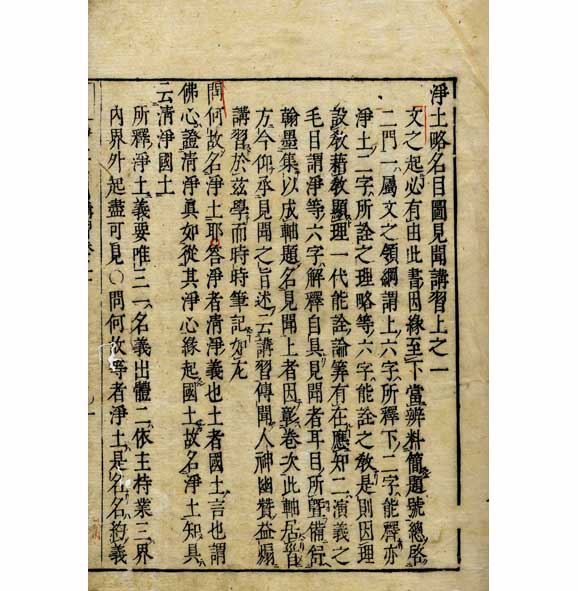 淨土略名目圖見聞講習上之一
文之起必有由此書因緣至下當辨料簡題號總略
二門一屬文之領綱謂上六字所釋下二字能釋亦
淨土二字所詮之理略等六字能詮之敎是則因理
設敎藉敎顯理一代能詮論筭有在應知二演義之
毛目謂淨等六字解釋自具見聞者耳目所曁備衍
翰墨集以成軸題名見聞上者因彰卷次此軸居首
方今仰承見聞之旨述云講習傳聞人神幽贊益煽
講習於玆學而時時筆記如左
問何故名淨土耶答淨者清淨義也土者國土言也謂
佛心證清淨眞如從其淨心緣起國土故名淨土知具
云清淨國土
所釋淨土義要唯三一名義出體二依主持業三界
內界外起盡可見○問何故等者淨土是名名約義